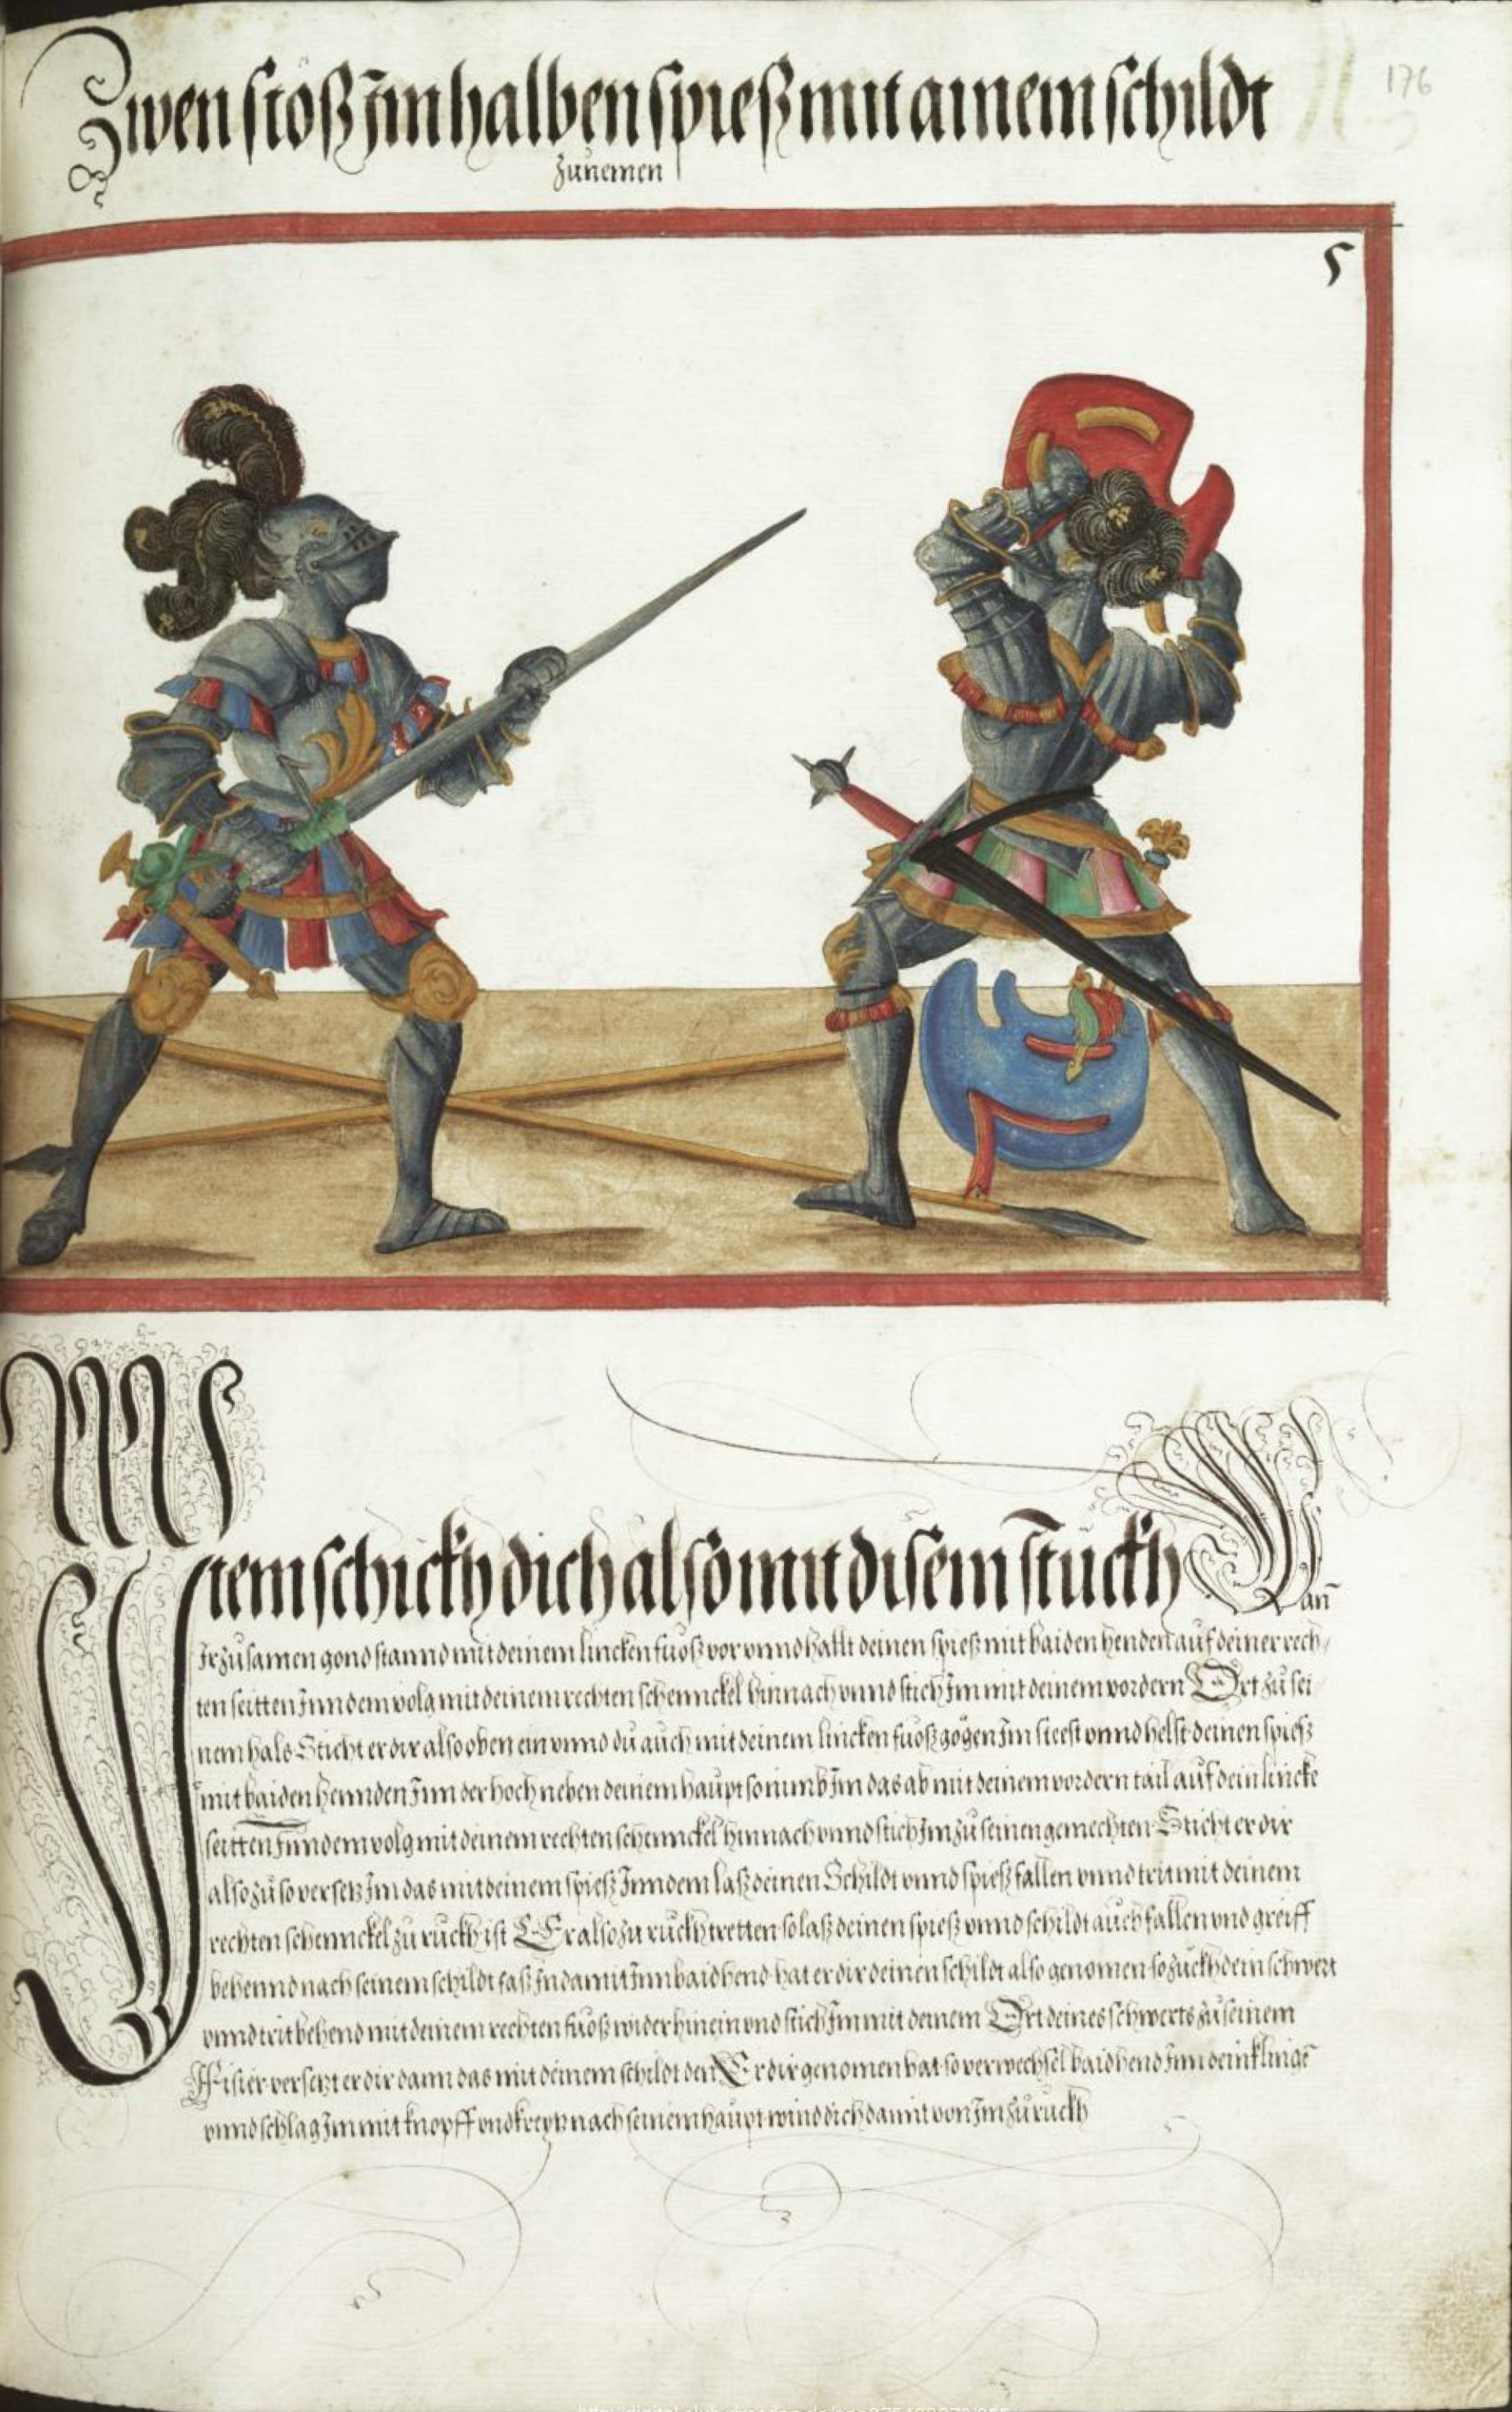 176
Zwen stöß im halben spieß mit ainem schildt
zu nemen
5
Item schickh dich also mit disem stuckh Wan̄
Ir zusamen gond stannd mit deinem lincken fuoß vor vnnd hallt deinen spieß mit baiden henden auf deiner rech
ten seitten Inn dem volg mit deinem rechten schennckel hinnach vnnd stich Im mit deinem vordern Ort zu sei
nem hals Sticht er dir also oben ein vnnd du auch mit deinem lincken fuoß gögen Im steest vnnd helst deinen spieß
mit baiden hennden Inn der hoch neben deinem haupt so nimb Im das ab mit deinem vordern tail auf dein lincke
seitten Inn dem volg mit deinem rechten schennckel hinnach vnnd stich Im zu seinen gemechten Sticht er dir
also zu so versetz Im das mit deinem spieß Inn dem laß deinen Schildt vnnd spieß fallen vnnd trit mit deinem
rechten schennckel zu ruckh ist Er also zu ruckh tretten so laß deinen spieß vnnd schildt auch fallen vnd greiff
behennd nach seinem schildt faß In damit Inn baid hend hat er dir deinen schildt also genomen so zuckh dein schwert
vnnd trit behend mit deinem rechten fuoß wider hinein vnd stich Im mit deinem Ort deines schwerts zu seinem
Fisier versetzt er dir dann das mit deinem schildt den Er dir genomen hat so verwechsel baid hend Inn dein klingē
vnnd schlag Im mit knopff vnd kreytz nach seinem haupt wind dich damit von Im zu ruckh